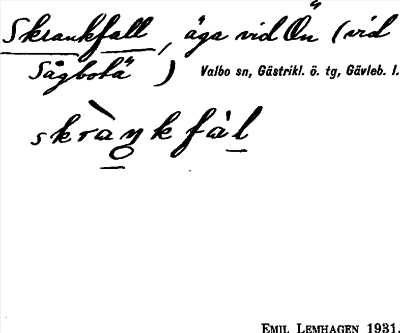 Skrankfall, äga vid Ön (vid
Sågbobä) Valbo sn, Gästrikl. ö. tg, Gävleb. l.
skràŋkfàl
EMIL LEMHAGEN 1931.